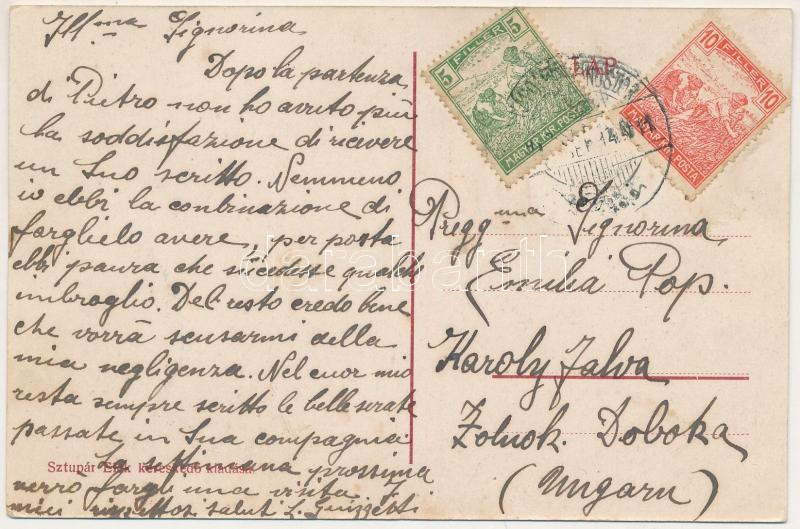 Ill.ma Signorina
Dopo la partenza
di Pietro non ho avuto più
la soddisfazione di ricevere
un Suo scritto. Nemmeno
io ebbi la conbinazione di
farglielo avere, per posta
ebbi paura che succedesse qualche
imbroglio. Del resto credo bene
che vorrà scusarmi della
mia negligenza. Nel cuor mio
resta sempre scritto le belle serate
passate in Sua compagnia.
La settimana prossima
verrò fargli una visita. I
miei rispettosi saluti
Sztupár kereskedő kiadása.
LAP
5 FILLER 5
MAGYAR KIR. POSTA
10 FILLER 10
MAGYAR KIR. POSTA
Pregg.ma Signorina
Emilia Pop.
Karoly Falva
Zolnok. Doboka
(Ungaru)
darabanth